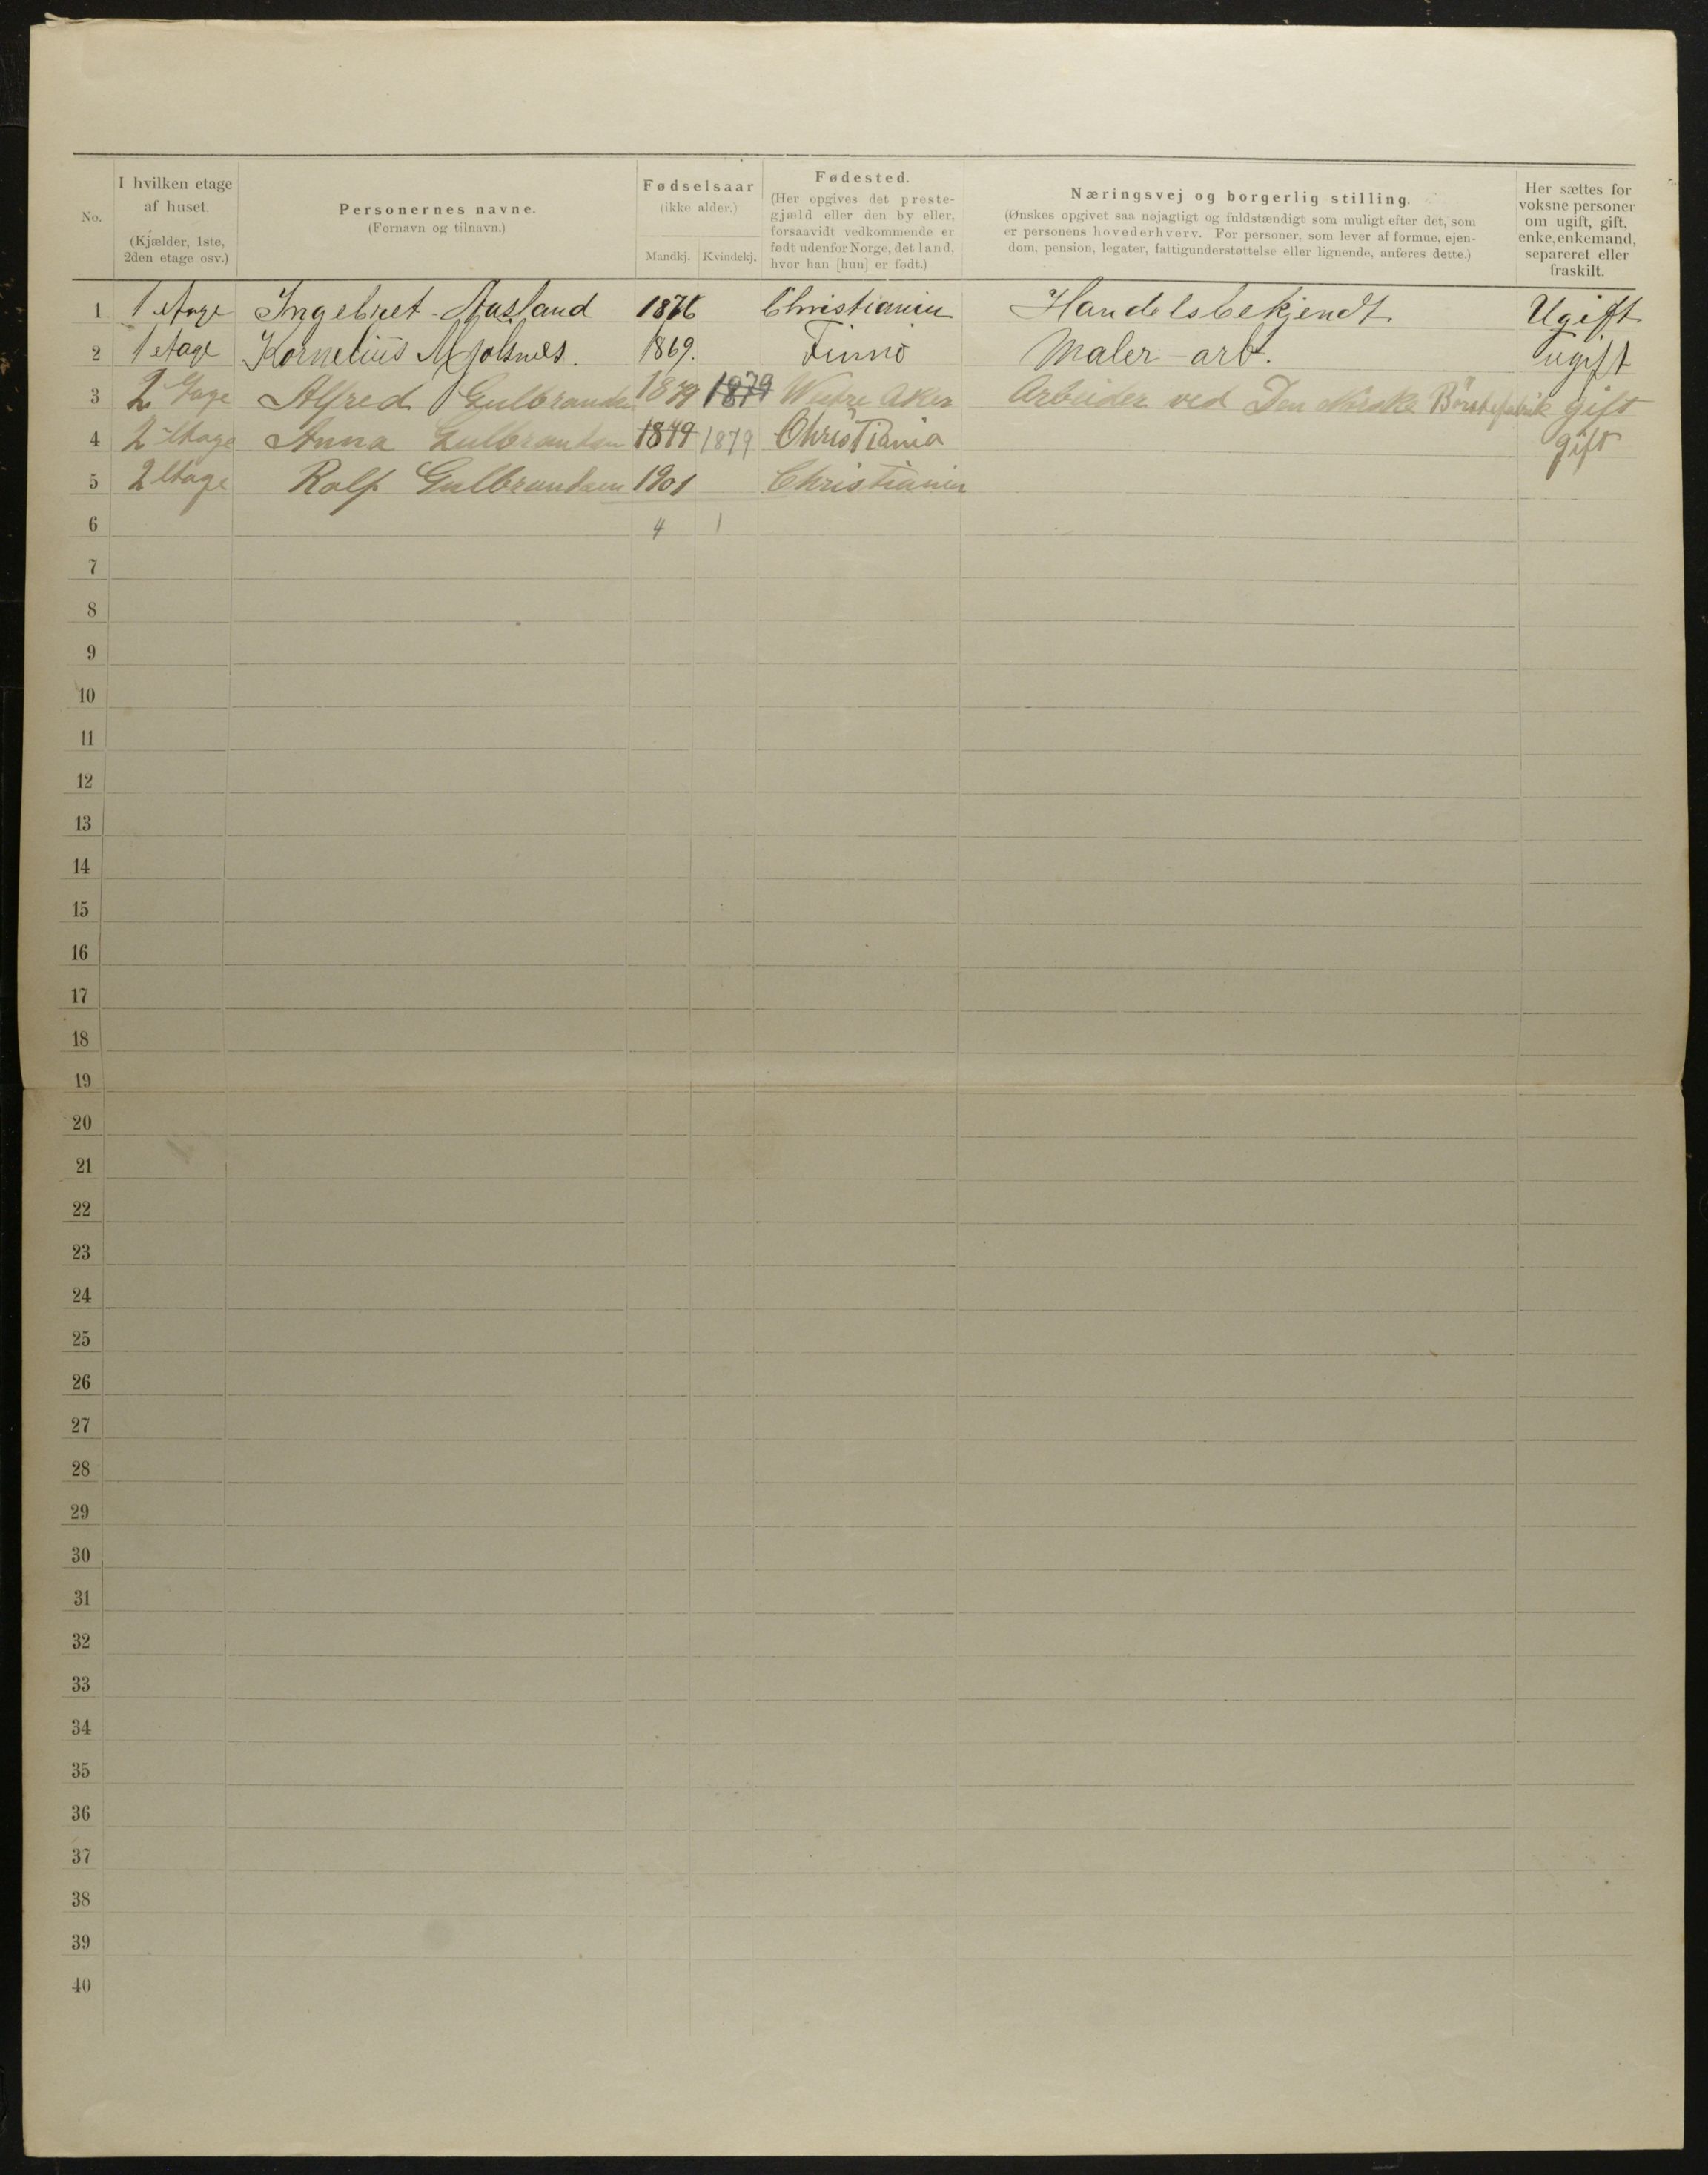 No.
I hvilken etage af huset. (Kjælder, 1ste, 2den etage osv.)
Personernes navne. (Fornavn og tilnavn.)
Fødselsaar (ikke alder.)
Mandkj. Kvindekj.
Fødested. (Her opgives det prestegjæld eller den by eller, forsaavidt vedkommende er født udenfor Norge, det land, hvor han [hun] er født.)
Næringsvej og borgerlig stilling. (Ønskes opgivet saa nøjagtigt og fuldstændigt som muligt efter det, som er personens hovederhverv. For personer, som lever af formue, ejendom, pension, legater, fattigunderstøttelse eller lignende, anføres dette.)
Her sættes for voksne personer om ugift, gift, enke, enkemand, separeret eller fraskilt.
1 1 etage Ingebret Aasland 1876 Christiania Handelsbetjendt Ugift
2 1 etage Kornelius 1869. Finnø Maler arb. ugift
3 2 Etage Alfred Gulbrandsen 1879 1879 Vestre Aker Arbeider ved Den Norske Börstefabrik gift
4 2 Etage Anna Gulbrandsen 1879 1879 Christiania gift
5 2 Etage Rolf Gulbrandsen 1901 Christiania
6 4 1
7
8
9
10
11
12
13
14
15
16
17
18
19
20
21
22
23
24
25
26
27
28
29
30
31
32
33
34
35
36
37
38
39
40